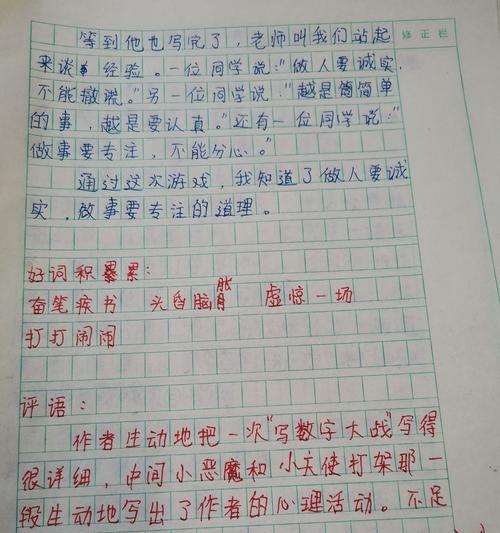 等到他也写完了，老师叫我们站起
修正栏
来谈经验。一位同学说：“做人要诚实，
不能撒谎。”另一位同学说：“越是简简单
的事，越是要认真。”还有一位同学说：“
做事要专注，不能分心。”
通过这次游戏，我知道了做人要诚
实，做事要专注的道理。
好词积累累：
奋笔疾书 头昏脑胀 虚惊一场
打打闹闹
评语：
作者生动地把一次“写数字大战”写得
很详细，中间小恶魔和小天使打架那一
段生动地写出了作者的心理活动。不足